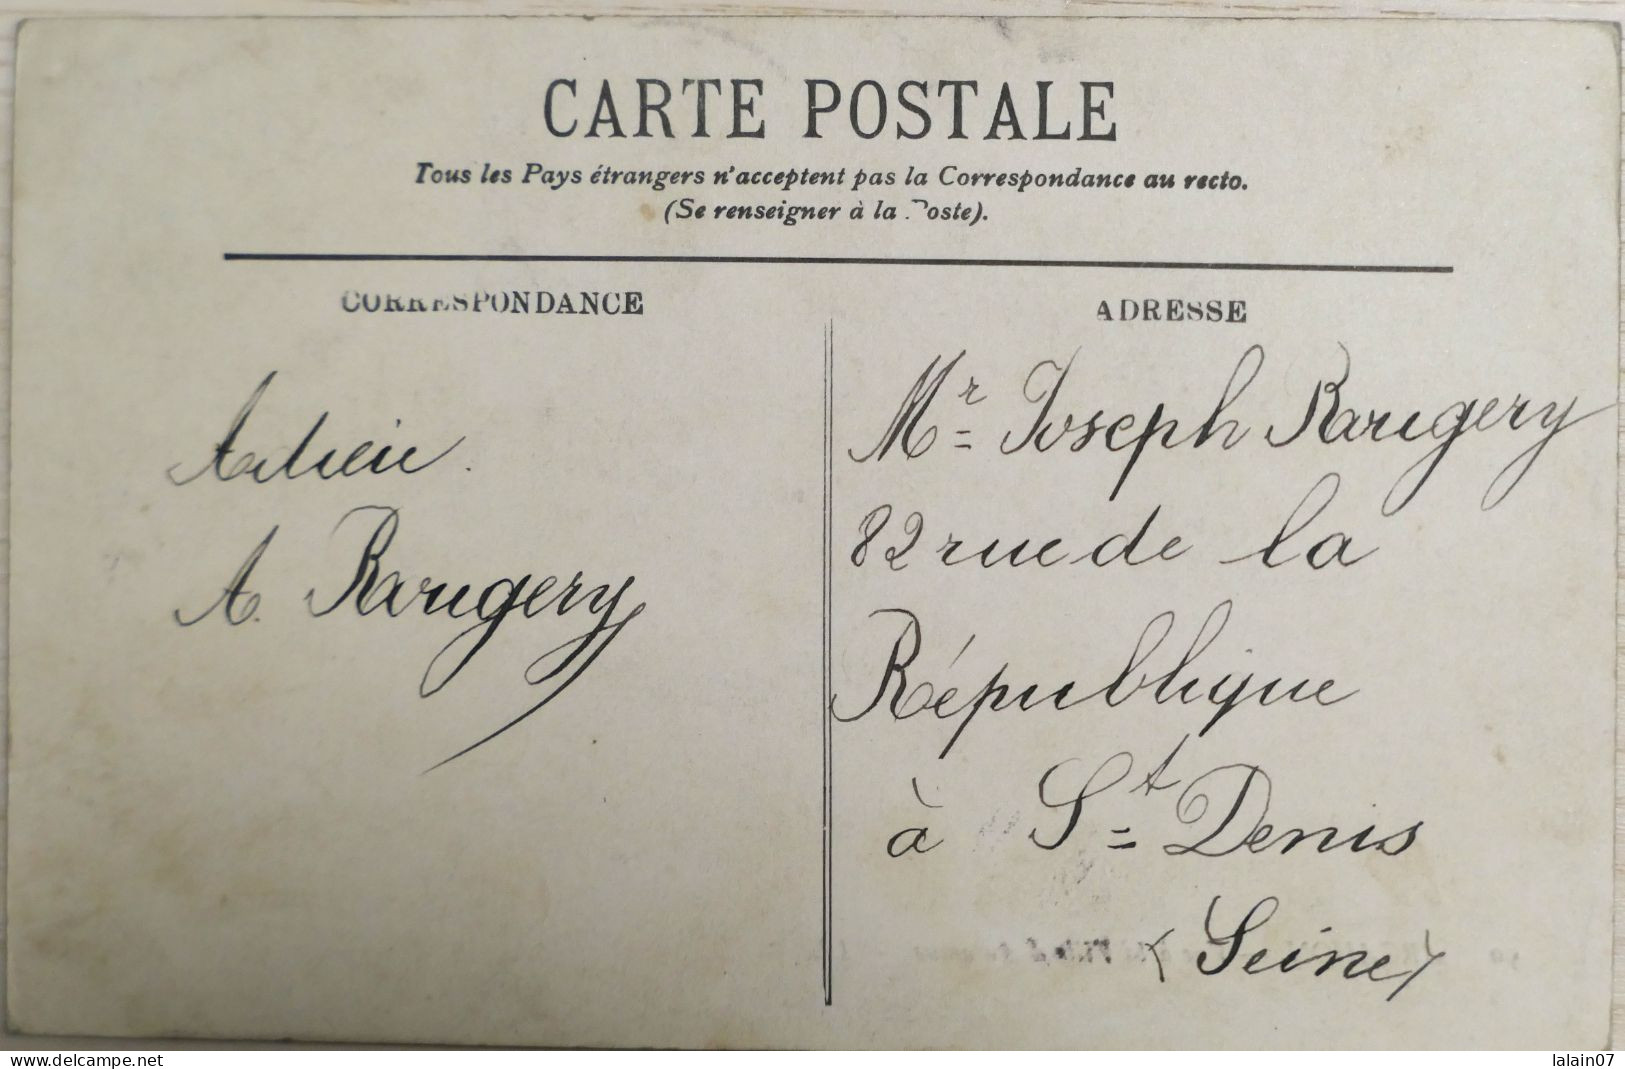 CARTE POSTALE
Tous les Pays étrangers n'acceptent pas la Correspondance au recto.
(Se renseigner à la Poste).
CORRESPONDANCE
Adieu.
A. Raugery
ADRESSE
Mr Joseph Raugery
82 rue de la
République
à St Denis
(Seine)
www.delcampe.net
lalain07